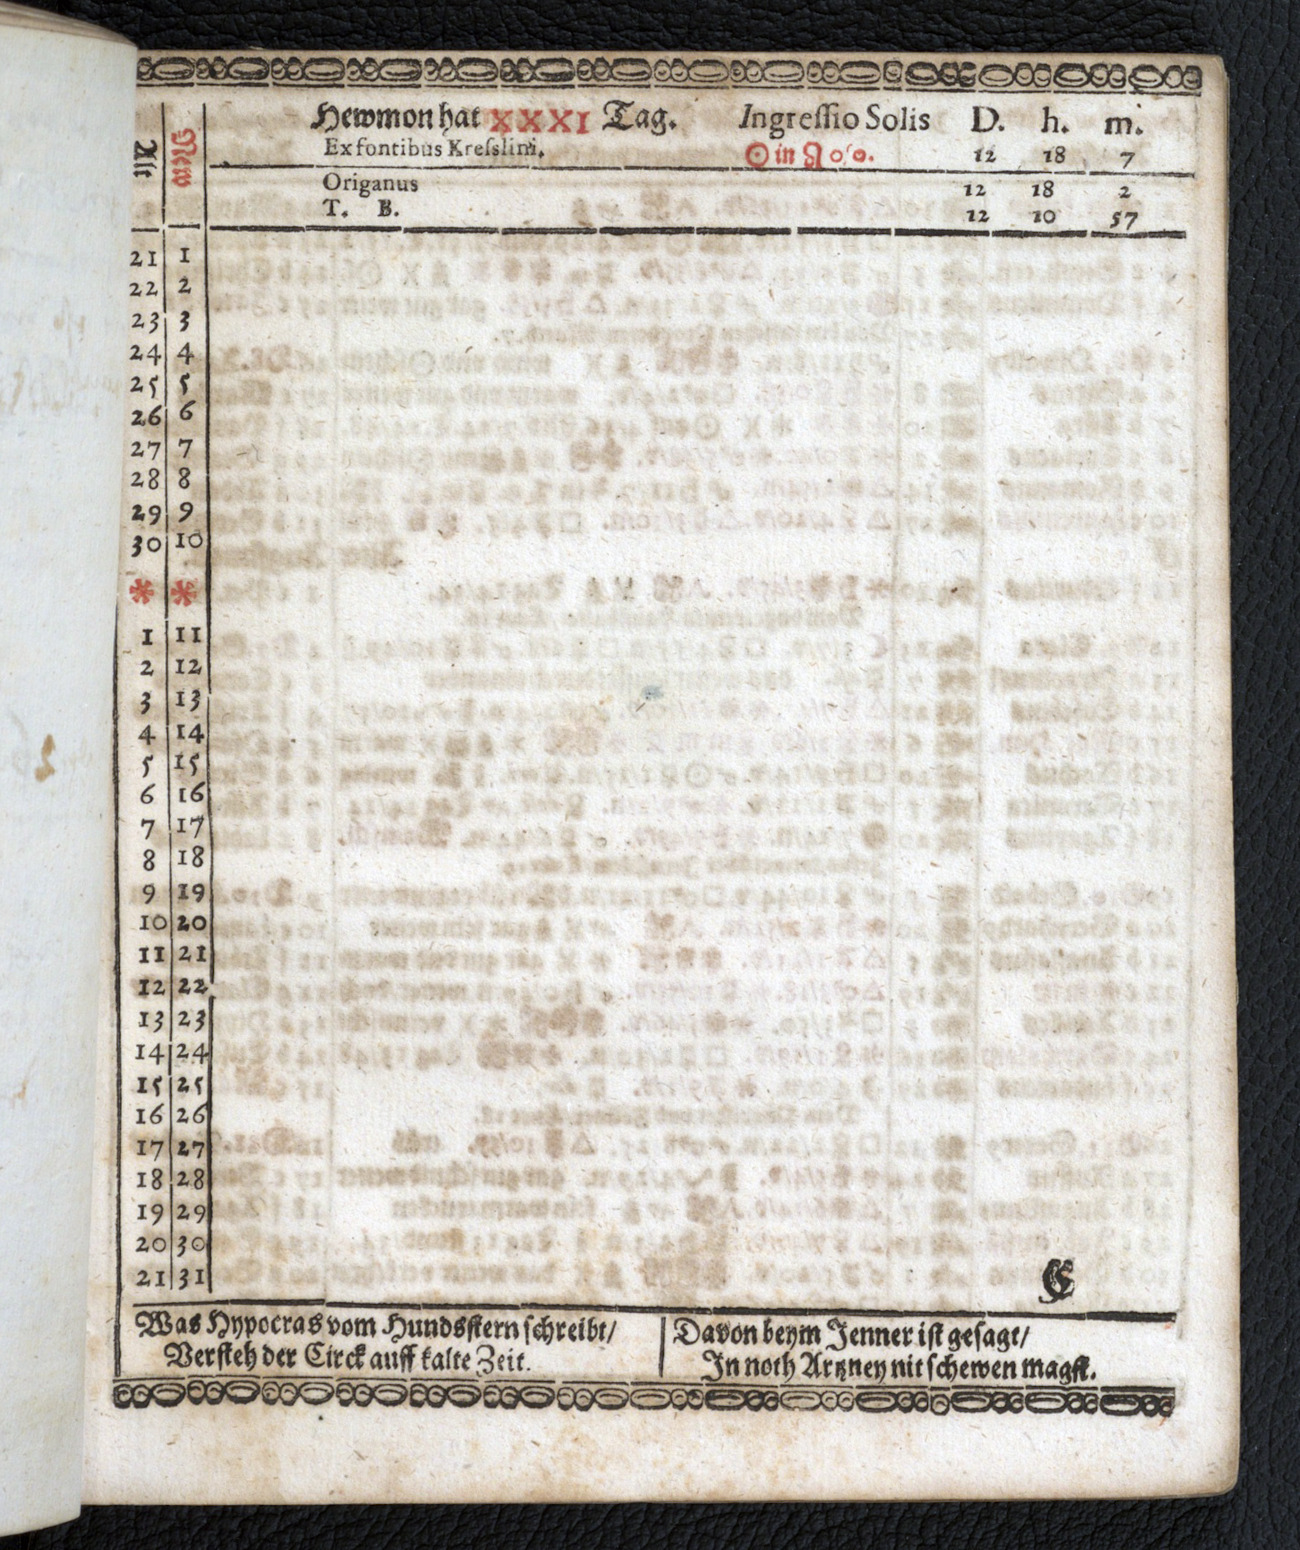 Alt
New
Hewmon hat XXXI Tag. Ingressio Solis D. h. m.
Ex fontibus Kresslini. ☉ in ♌ 0/0. 12 18 7
Origanus 12 18 2
T. B. 12 10 57
21 1
22 2
23 3
24 4
25 5
26 6
27 7
28 8
29 9
30 10
* *
1 11
2 12
3 13
4 14
5 15
6 16
7 17
8 18
9 19
10 20
11 21
12 22
13 23
14 24
15 25
16 26
17 27
18 28
19 29
20 30
21 31
Was Hypocras vom Hundsstern schreibt/
Versteh der Circk auff kalte Zeit.
Davon beym Jenner ist gesagt/
In noth Artzney nit schewen magst.